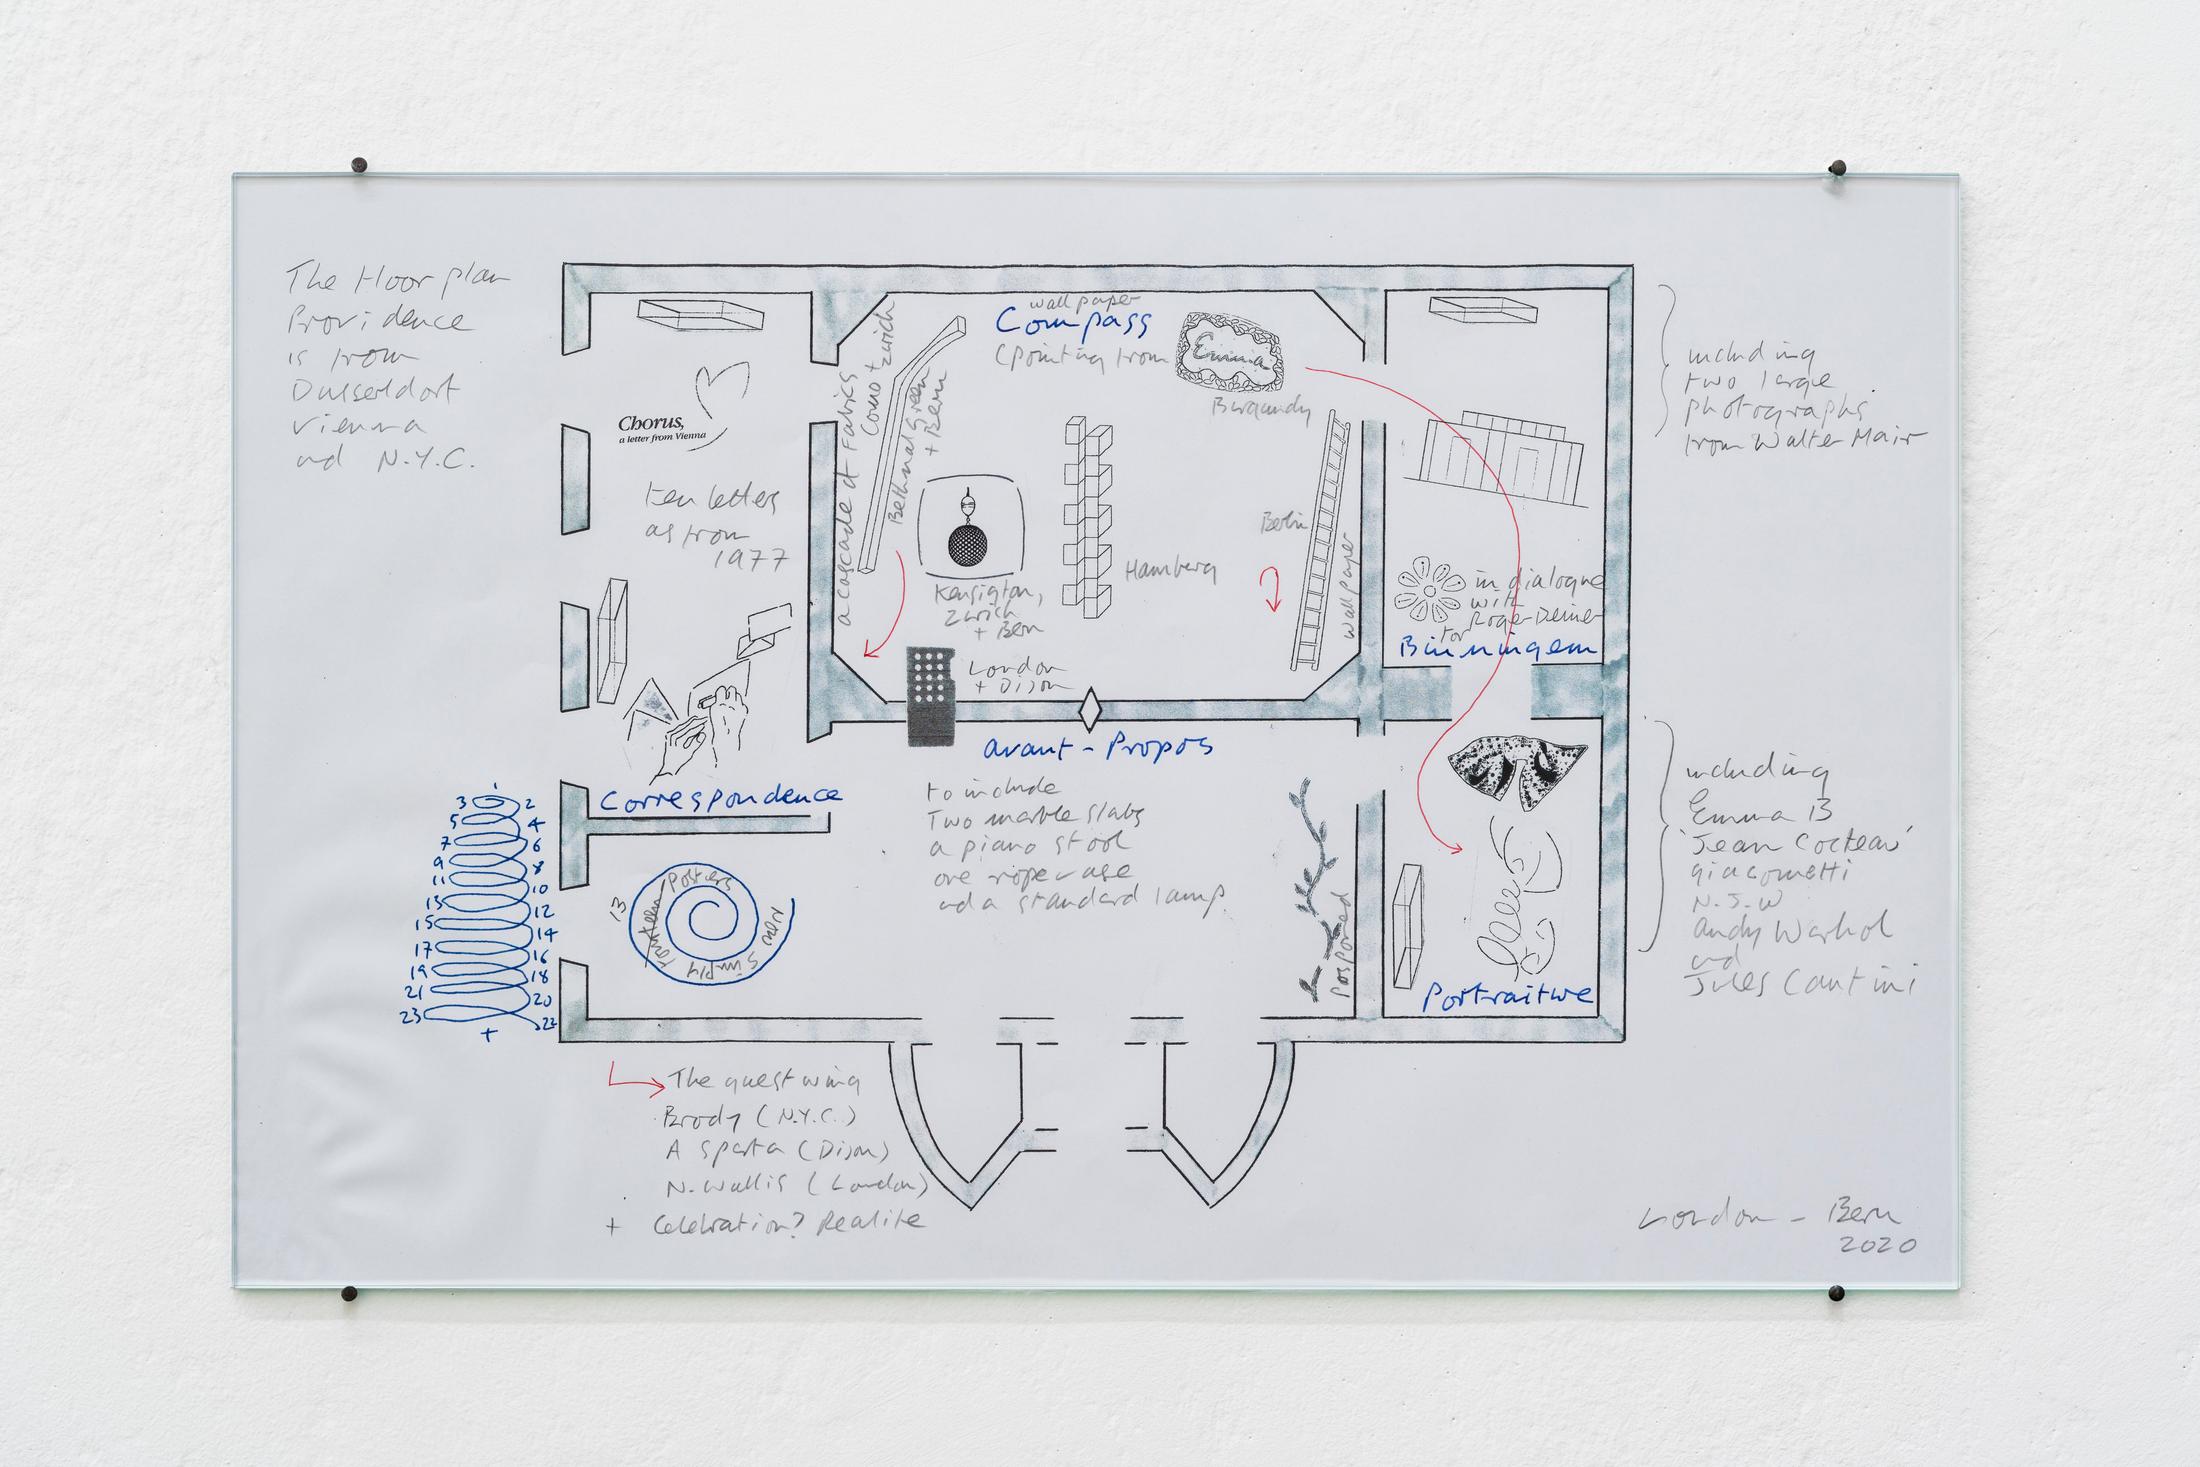 The floor plan
Providence
is from
Dusseldorf
Vienna
and N.Y.C.
Chorus,
a letter from Vienna
ten letters
as from
1977
Correspondence
a cascade of Fabrics
Como + Zurich
Bethnal Green
+ Bern
wall paper
Compass
(pointing from
Emma
Burgundy
Kensigton,
Zurich
+ Bern
London
+ Dijon
Hamburg
Berlin
wall paper
in dialogue
with
Roger Diener
for
Binningen
including
two large
photographs
from Walter Mair
avant-Propos
to include
Two marble slabs
a piano stool
one rope vase
and a standard lamp
Posponed
Portraiture
including
Emma B
'Jean Cocteau'
giacometti
N.J.W
Andy Warhol
and
Jules Cantini
1
3 2
5 4
7 6
9 8
11 10
13 12
15 14
17 16
19 18
21 20
23 22
+
13
fourteen
Posters
simply
The guest wing
Brody (N.Y.C.)
A Sparta (Dijon)
N. Wallis (London)
+ Celebration? Realife
London - Bern
2020